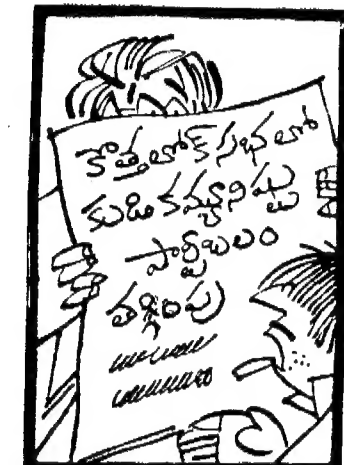 కొత్త లోక్ సభలో
కుడి కమ్యూనిష్టు
పార్టీబలం
తగ్గింపు